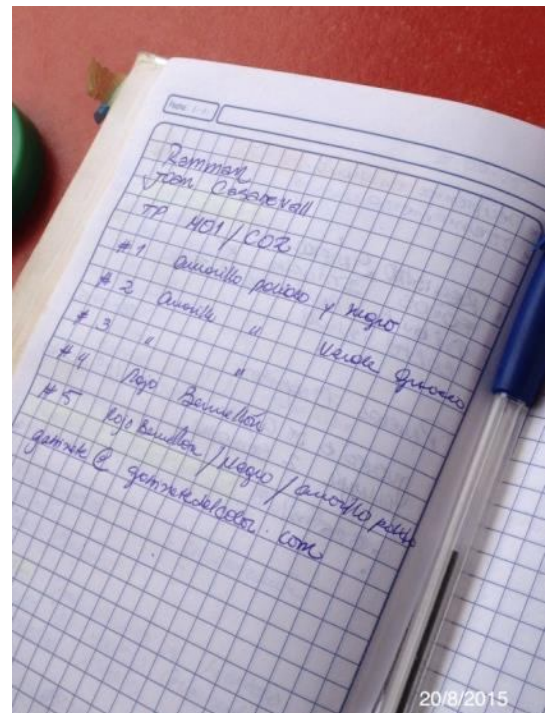 Rammon
Joan Casadevall
TP 401/COR
#1 amarillo pálido y negro
#2 Amarillo " Verde
#3 " "
#4 Rojo Bermellón
#5 Rojo Bermellón / Negro / amarillo pálido
gabinete@gabinetedelcolor.com
20/8/2015